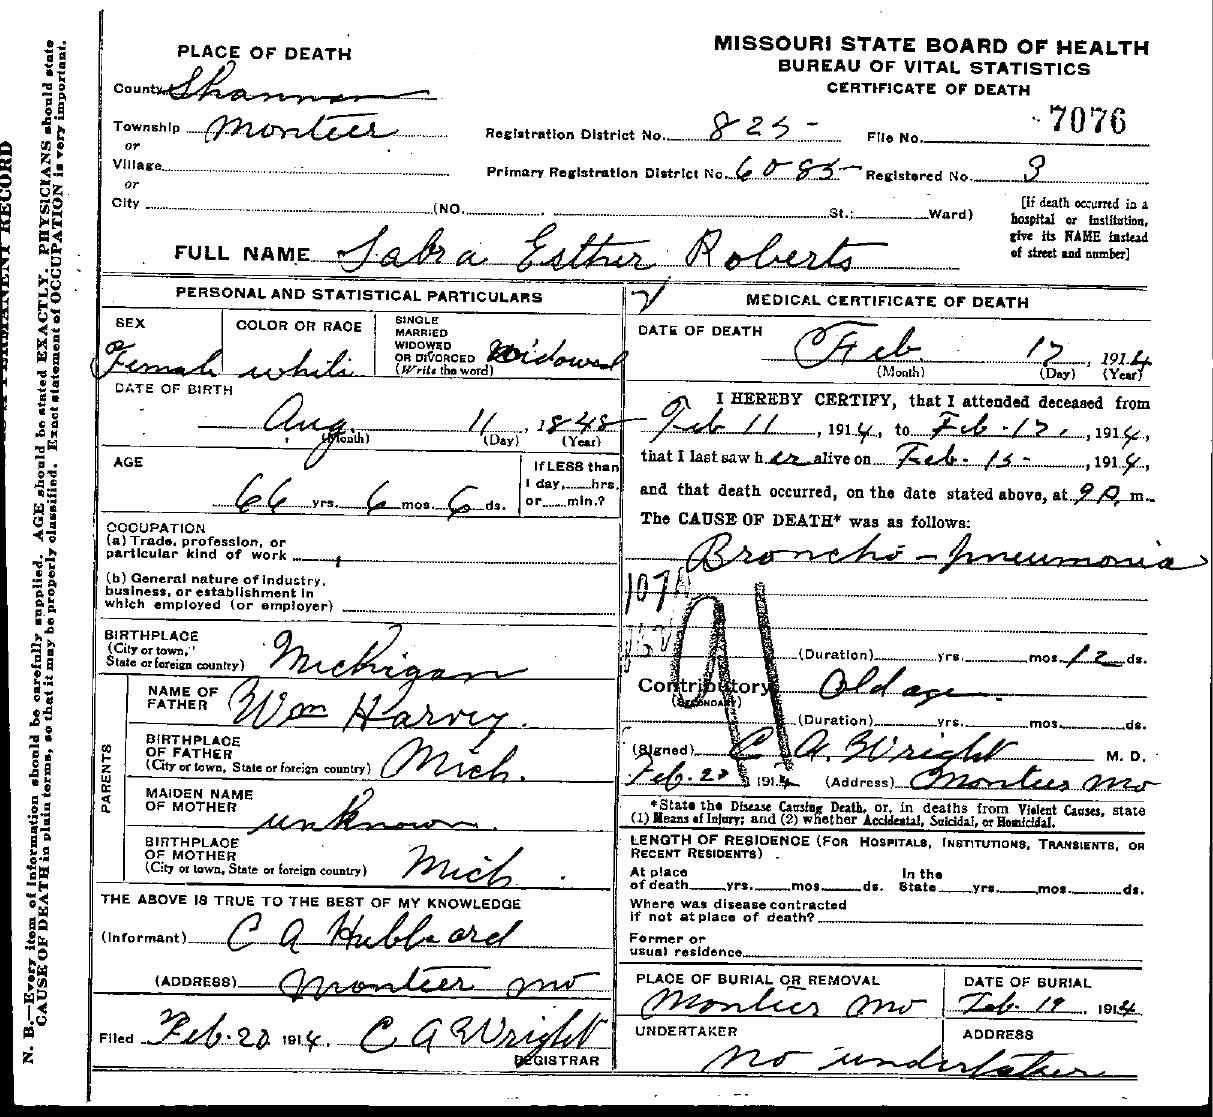 N. B.—Every item of information should be carefully supplied. AGE should be stated EXACTLY. PHYSICIANS should state
CAUSE OF DEATH in plain terms, so that it may be properly classified. Exact statement of OCCUPATION is very important.
PERMANENT RECORD
MISSOURI STATE BOARD OF HEALTH
BUREAU OF VITAL STATISTICS
CERTIFICATE OF DEATH
PLACE OF DEATH
County Shannon
Township Montier
or
Village
or
City (NO. St.; Ward)
Registration District No. 825- File No. 7076
Primary Registration District No. 6085- Registered No. 3
[If death occurred in a
hospital or institution,
give its NAME instead
of street and number]
FULL NAME Sabra Esther Roberts
PERSONAL AND STATISTICAL PARTICULARS
SEX Female
COLOR OR RACE white
SINGLE
MARRIED
WIDOWED
OR DIVORCED
(Write the word) Widowed
DATE OF BIRTH
Aug. 11, 1848
(Month) (Day) (Year)
AGE
66 yrs. 6 mos. 6 ds.
If LESS than
1 day,......hrs.
or......min.?
OCCUPATION
(a) Trade, profession, or
particular kind of work
(b) General nature of industry,
business, or establishment in
which employed (or employer)
BIRTHPLACE
(City or town,
State or foreign country) Michigan
PARENTS
NAME OF
FATHER Wm Harvey.
BIRTHPLACE
OF FATHER
(City or town, State or foreign country) Mich.
MAIDEN NAME
OF MOTHER unknown.
BIRTHPLACE
OF MOTHER
(City or town, State or foreign country) Mich.
THE ABOVE IS TRUE TO THE BEST OF MY KNOWLEDGE
(Informant) C A Hubbard
(ADDRESS) Montier Mo
Filed Feb. 20 1914. C A Wright
REGISTRAR
MEDICAL CERTIFICATE OF DEATH
DATE OF DEATH Feb. 17, 1914
(Month) (Day) (Year)
I HEREBY CERTIFY, that I attended deceased from
Feb 11, 1914, to Feb. 17., 1914,
that I last saw her alive on Feb. 15-, 1914,
and that death occurred, on the date stated above, at 9 P. m.
The CAUSE OF DEATH* was as follows:
Broncho-pneumonia
107A
91
(Duration) yrs. mos. 12 ds.
Contributory Old age.
(SECONDARY)
(Duration) yrs. mos. ds.
(Signed) C A. Wright M. D.
Feb. 20 1914 (Address) Montier Mo
*State the Disease Causing Death, or, in deaths from Violent Causes, state
(1) Means of Injury; and (2) whether Accidental, Suicidal, or Homicidal.
LENGTH OF RESIDENCE (FOR HOSPITALS, INSTITUTIONS, TRANSIENTS, OR
RECENT RESIDENTS).
At place In the
of death yrs. mos. ds. State yrs. mos. ds.
Where was disease contracted
if not at place of death?
Former or
usual residence
PLACE OF BURIAL OR REMOVAL
Montier Mo
DATE OF BURIAL
Feb. 19, 1914
UNDERTAKER ADDRESS
no undertaker